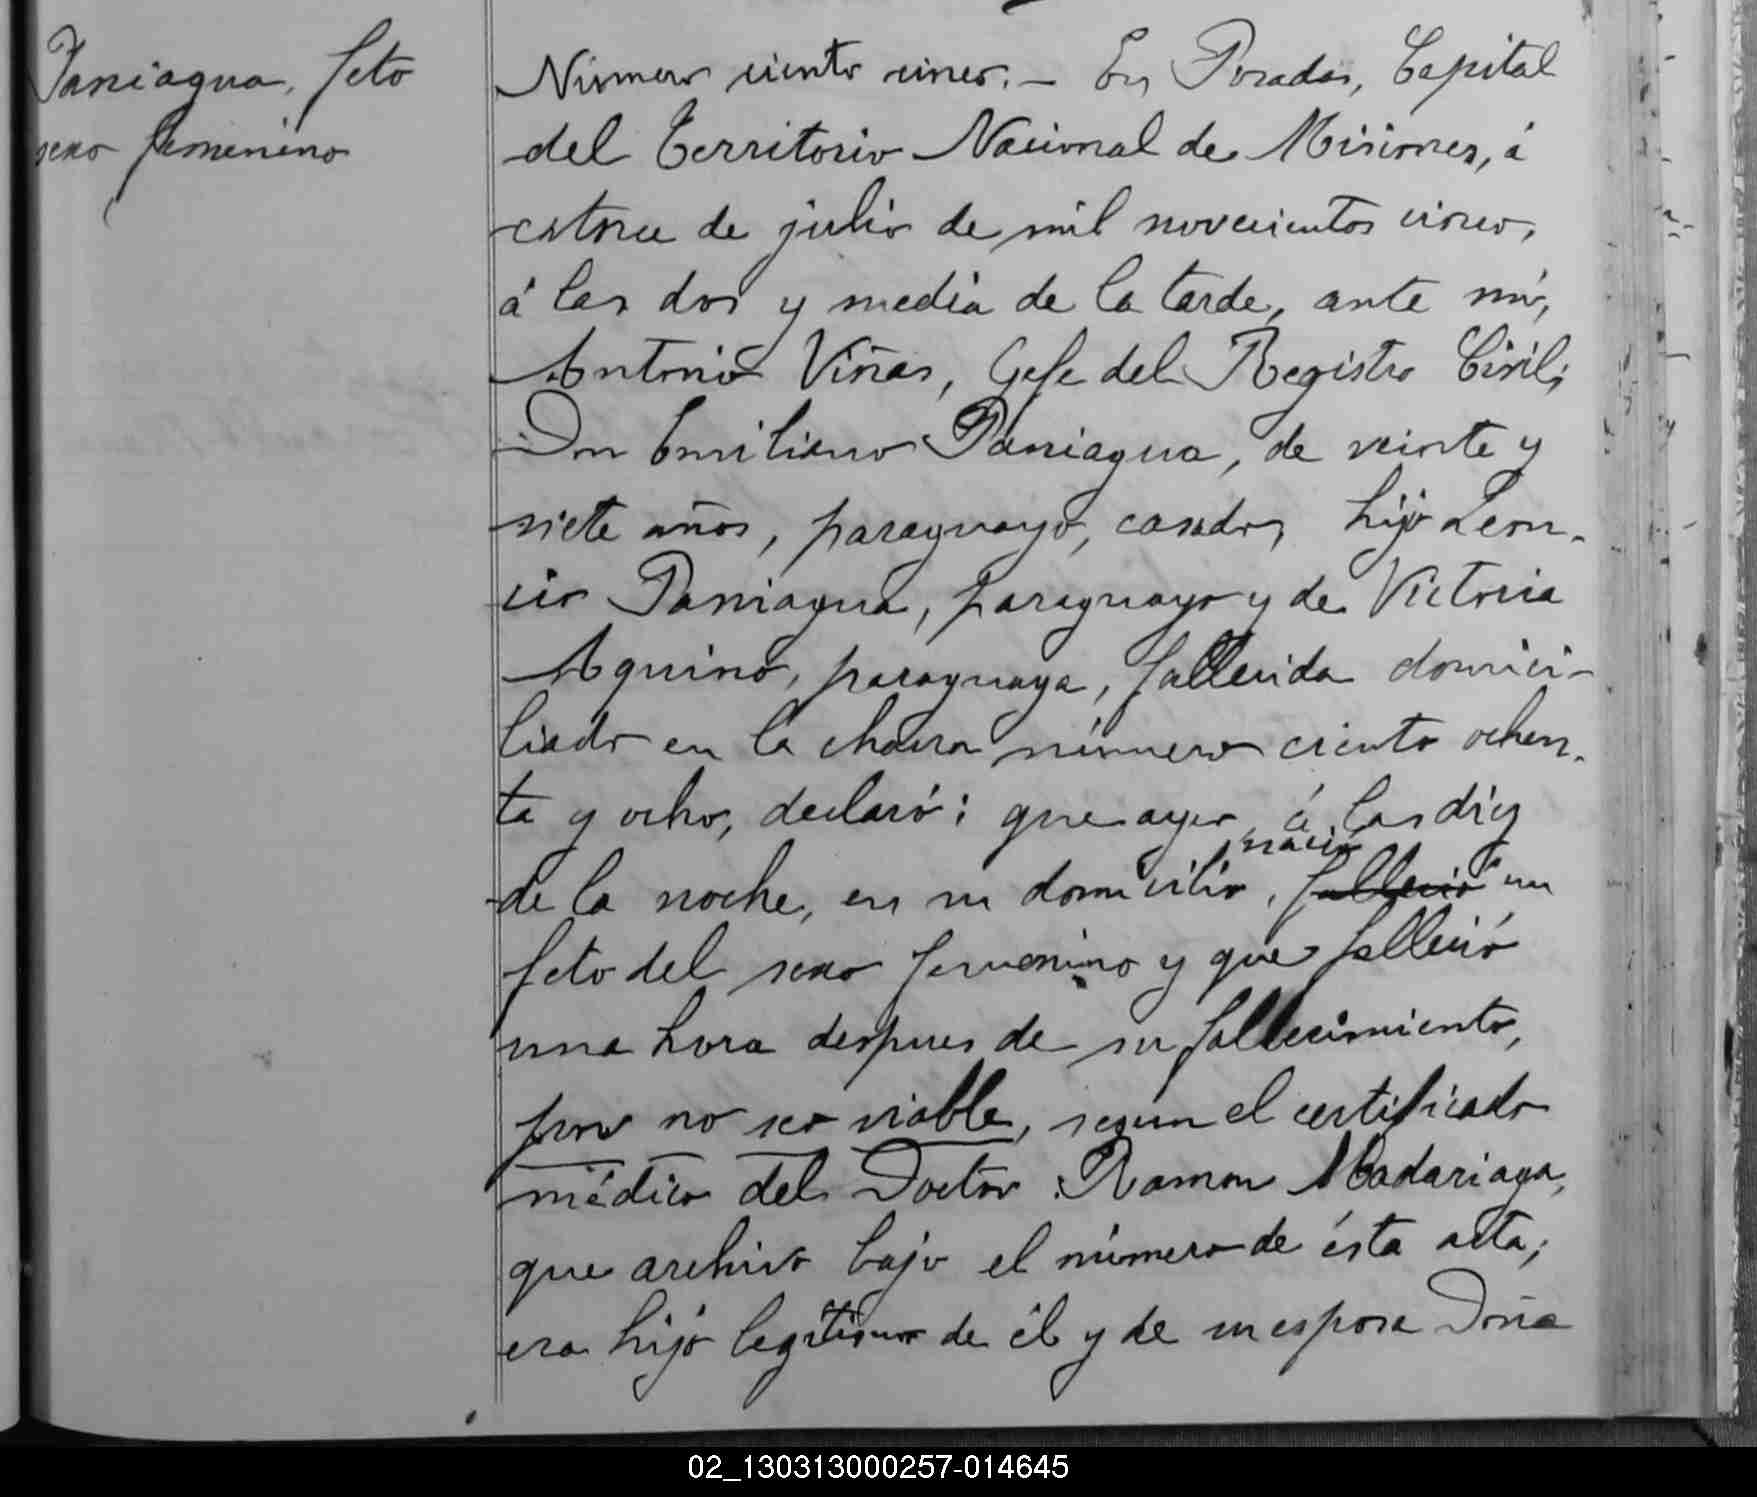 Paniagua, feto
sexo femenino
Número ciento cinco.— En Posadas, Capital
del Territorio Nacional de Misiones, á
catorce de julio de mil novecientos cinco,
á las dos y media de la tarde, ante mí,
Antonio Viñas, Gefe del Registro Civil;
Don Emiliano Paniagua, de veinte y
siete años, paraguayo, casado, hijo Leon-
cio Paniagua, paraguayo y de Victoria
Aquino, paraguaya, fallecida domici-
liado en la chacra número ciento ochen-
ta y ocho, declaró: que ayer á las diez
nació
de la noche, en su domicilio, falleció un
feto del sexo femenino y que falleció
una hora despues de su fallecimiento,
por no ser viable, segun el certificado
médico del Doctor Ramon Madariaga,
que archivo bajo el número de ésta acta;
era hijo legítimo de él y de su esposa Doña
02_130313000257-014645